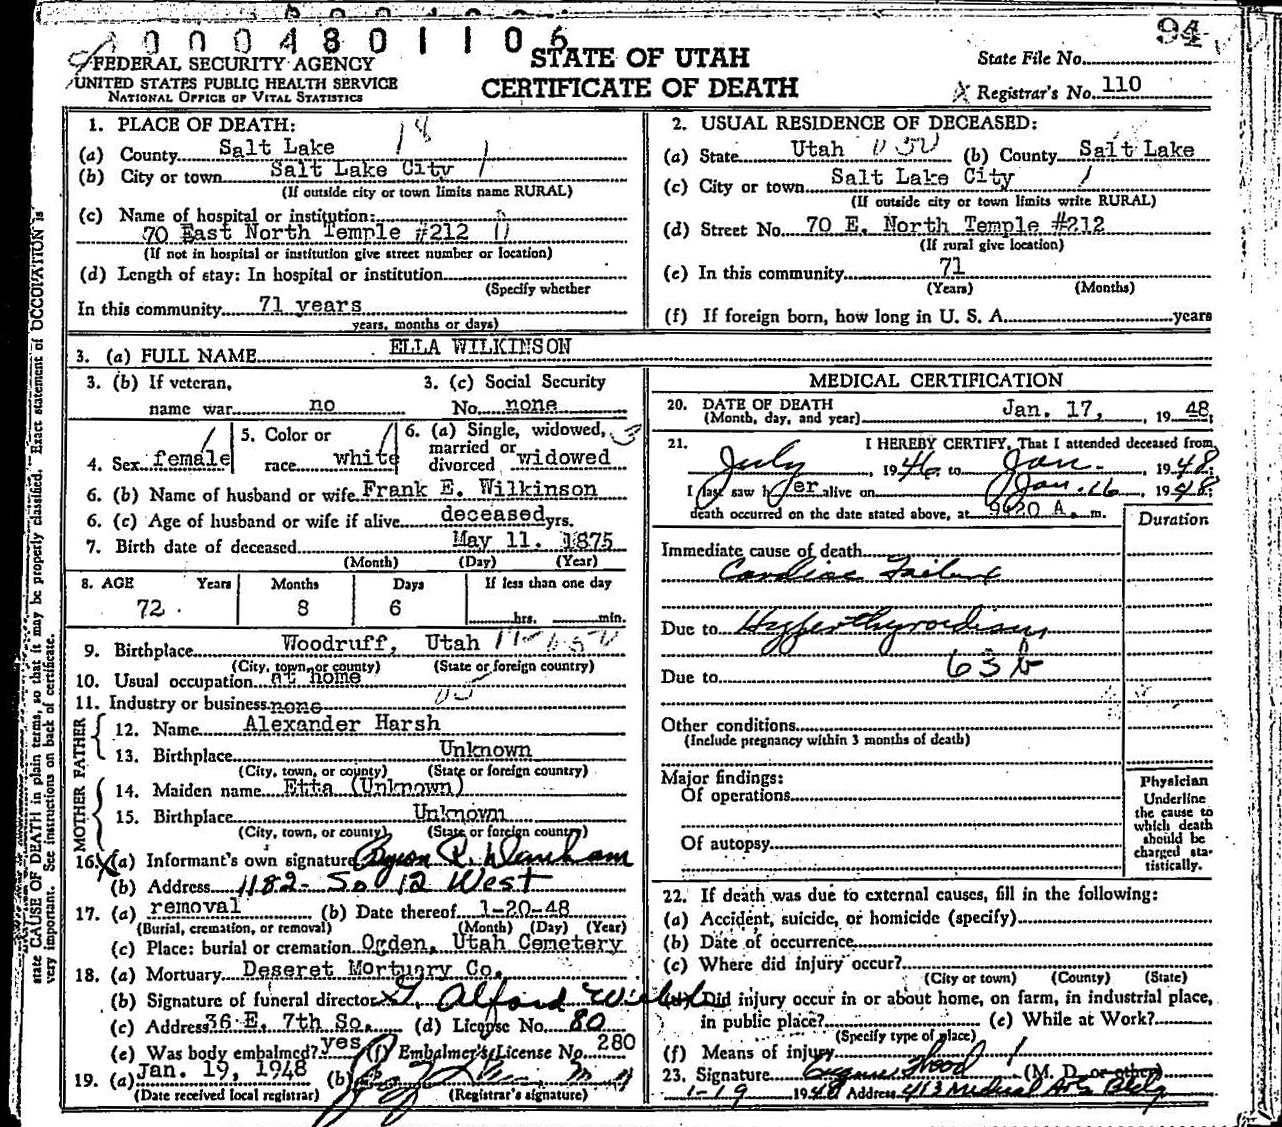 0 0 0 4 8 0 1 1 0 6
94
FEDERAL SECURITY AGENCY
UNITED STATES PUBLIC HEALTH SERVICE
NATIONAL OFFICE OF VITAL STATISTICS
STATE OF UTAH
CERTIFICATE OF DEATH
State File No.
X Registrar's No. 110
1. PLACE OF DEATH: 18
(a) County Salt Lake
(b) City or town Salt Lake City 1
(If outside city or town limits name RURAL)
(c) Name of hospital or institution:
70 East North Temple #212
(If not in hospital or institution give street number or location)
(d) Length of stay: In hospital or institution
(Specify whether
In this community 71 years
years, months or days)
2. USUAL RESIDENCE OF DECEASED:
(a) State Utah (b) County Salt Lake
(c) City or town Salt Lake City 1
(If outside city or town limits write RURAL)
(d) Street No. 70 E. North Temple #212
(If rural give location)
(e) In this community 71
(Years) (Months)
(f) If foreign born, how long in U. S. A. years
3. (a) FULL NAME ELLA WILKINSON
3. (b) If veteran, 3. (c) Social Security
name war no No. none
4. Sex female
5. Color or race white
6. (a) Single, widowed, married or divorced widowed
6. (b) Name of husband or wife Frank E. Wilkinson
6. (c) Age of husband or wife if alive deceased yrs.
7. Birth date of deceased May 11. 1875
(Month) (Day) (Year)
8. AGE Years Months Days If less than one day
72 8 6 hrs. min.
9. Birthplace Woodruff, Utah
(City, town, or county) (State or foreign country)
10. Usual occupation at home
11. Industry or business none
FATHER
12. Name Alexander Harsh
13. Birthplace Unknown
(City, town, or county) (State or foreign country)
MOTHER
14. Maiden name Etta (Unknown)
15. Birthplace Unknown
(City, town, or county) (State or foreign country)
16. X (a) Informant's own signature Byron R.
(b) Address 1182 - So 12 West
17. (a) removal (b) Date thereof 1-20-48
(Burial, cremation, or removal) (Month) (Day) (Year)
(c) Place: burial or cremation Ogden, Utah Cemetery
18. (a) Mortuary Deseret Mortuary Co.
(b) Signature of funeral director Alford
(c) Address 36 E. 7th So. (d) License No. 80
(e) Was body embalmed? yes (f) Embalmer's License No. 280
19. (a) Jan. 19, 1948 (b)
(Date received local registrar) (Registrar's signature)
MEDICAL CERTIFICATION
20. DATE OF DEATH Jan. 17, 19 48
(Month, day, and year)
21. I HEREBY CERTIFY, That I attended deceased from
July, 19 46 to Jan., 19 48
I last saw h er alive on Jan. 16, 19 48
death occurred on the date stated above, at 9:20 A. m.
Duration
Immediate cause of death
Cardiac Failure
Due to Hyperthyroidism
63 b
Due to
Other conditions
(Include pregnancy within 3 months of death)
Major findings:
Of operations
Of autopsy
Physician
Underline
the cause to
which death
should be
charged sta-
tistically.
22. If death was due to external causes, fill in the following:
(a) Accident, suicide, or homicide (specify)
(b) Date of occurrence
(c) Where did injury occur?
(City or town) (County) (State)
(d) Did injury occur in or about home, on farm, in industrial place,
in public place? (e) While at Work?
(Specify type of place)
(f) Means of injury
23. Signature Eugene Wood (M. D. or other)
1-19 19 48 Address 413 Medical Arts Bldg
state CAUSE OF DEATH in plain terms, so that it may be properly classified. Exact statement of OCCUPATION is
very important. See instructions on back of certificate.